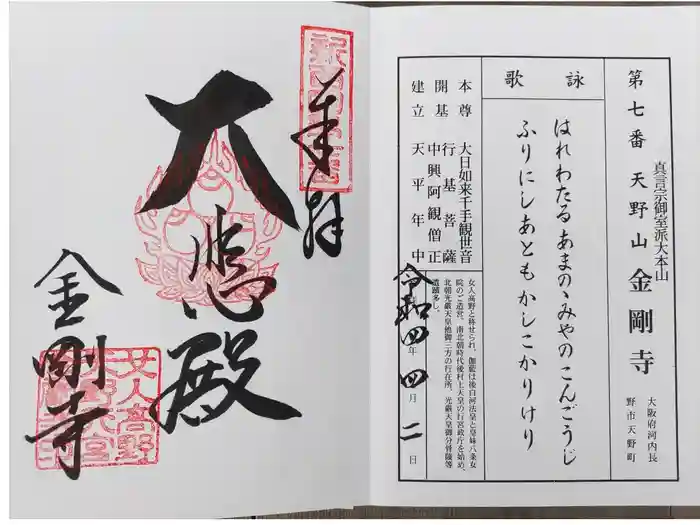 奉拝
大悲殿
金剛寺
女人高野
第七番 天野山 金剛寺
真言宗御室派大本山
大阪府河内長
野市天野町
詠歌
はれわたるあまのゝみやのこんごうじ
ふりにしあともかしこかりけり
本尊 大日如来千手観世音
開基 行基菩薩
中興阿観僧正
建立 天平年中
女人高野と称せられ、伽藍は後白河法皇と皇妹八条女
院のご造営。南北朝時代後村上天皇の行宮政庁を始め、
北朝光厳天皇他御三方の行在所、光厳天皇御分骨陵等
遺蹟多し。
令和四年四月二日